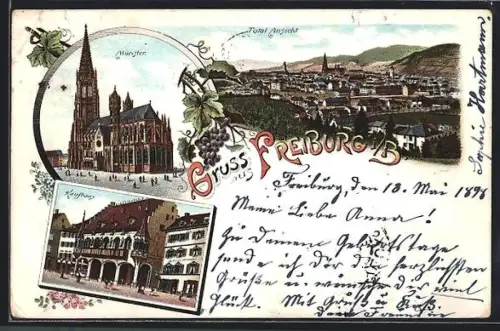 Münster.
Total Ansicht
Gruss aus FREIBURG i/B.
Kaufhaus
Freiburg, den 18. Mai 1898
Meine Liebe Anna!
Zu Deinem Geburtstage
sende ich Dir die herzlichsten
Grüße u. wünsche dir viel
Glück. Mit Gruß u. Kuß
Sophie Hartmann